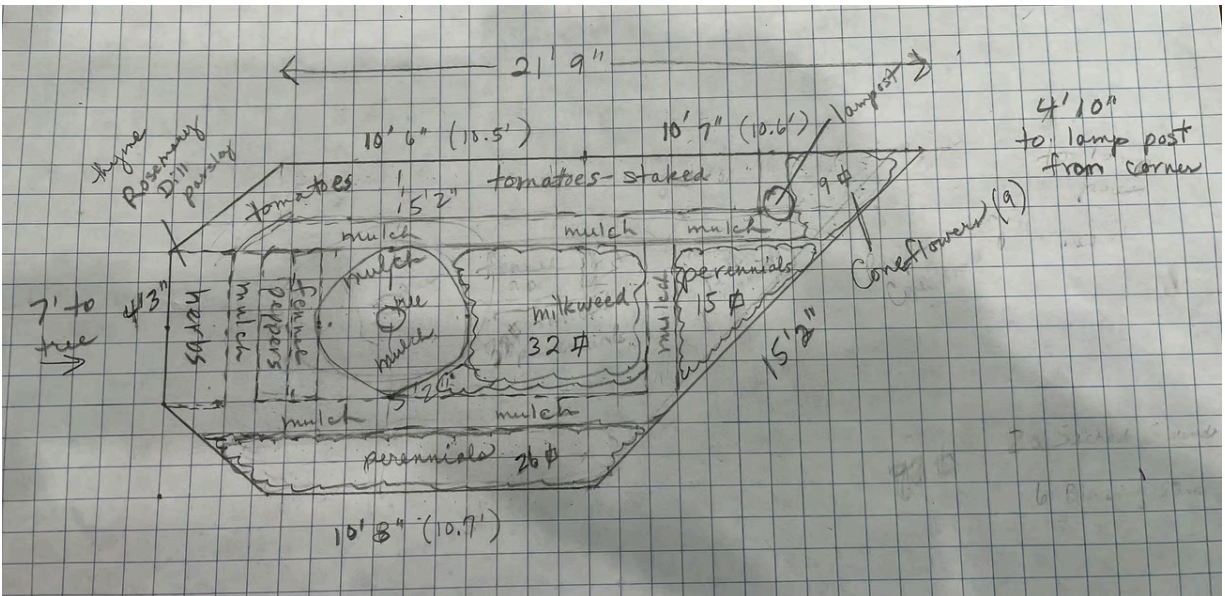 21' 9"
lampost
10' 6" (10.5')
10' 7" (10.6')
4' 10"
to lamp post
from corner
thyme
Rosemary
Dill
parsley
tomatoes
5' 2"
tomatoes-staked
9 ⌀
Coneflowers (9)
mulch
mulch
mulch
7' to
tree
4'3"
herbs
mulch
peppers
fennel
mulch
tree
mulch
5' 2"
milkweed
32 ⌀
mulch
perennials
15 ⌀
15' 2"
mulch
mulch
perennials 26 ⌀
10' 8" (10.7')